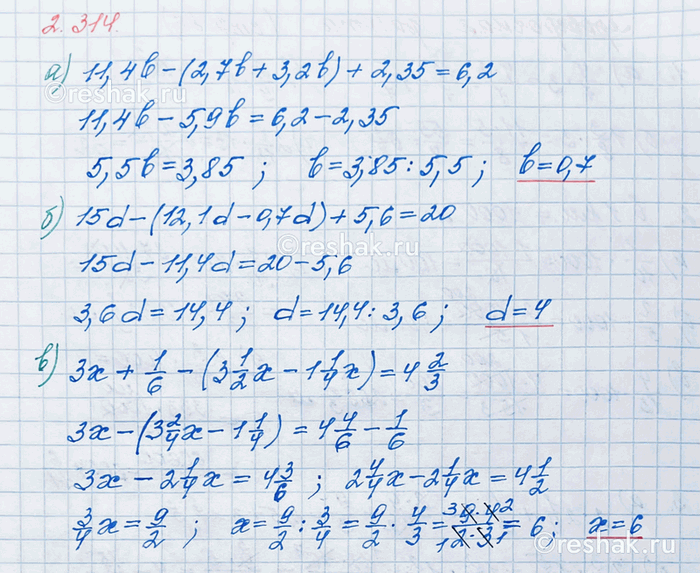 2.314.
а) 11,4b-(2,7b+3,2b)+2,35=6,2
11,4b-5,9b=6,2-2,35
5,5b=3,85 ; b=3,85:5,5 ; b=0,7
б) 15d-(12,1d-0,7d)+5,6=20
©reshak.ru
15d-11,4d=20-5,6
3,6d=14,4 ; d=14,4:3,6 ; d=4
в) 3x+1/6-(3 1/2x-1 1/4x)=4 2/3
3x-(3 2/4x-1 1/4)=4 4/6-1/6
3x-2 1/4x=4 3/6 ; 2 4/4x-2 1/4x=4 1/2
3/4x=9/2 ; x=9/2:3/4=9/2·4/3=(9·4)/(2·3) 3 2 1 1=6; x=6